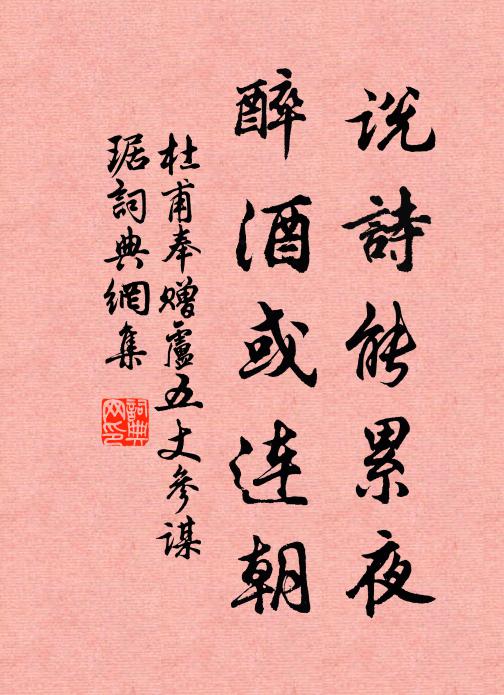 说詩能累夜
醉酒或连朝
杜甫奉赠盧五丈參謀
琚詞典網集
詞典
网印